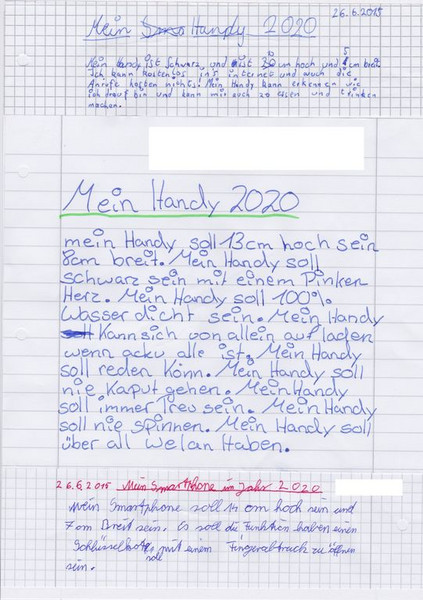 26.6.2015
Mein Handy 2020
Mein Handy ist Schwarz, und ist cm hoch und 5 cm breit.
Ich kann kostenlos ins internet und auch die
Anrufe kosten nichts! Mein Handy kann erkennen wie
ich drauf bin und kann mir auch zu essen und trinken
machen.
Mein Handy 2020
mein Handy soll 13cm hoch sein
8cm breit. Mein Handy soll
schwarz sein mit einem Pinken
Herz. Mein Handy soll 100%
Wasser dicht sein. Mein Handy
Kann sich von allein auf laden
wenn acku alle ist. Mein Handy
soll reden Könn. Mein Handy soll
nie Kaput gehen. Mein Handy
soll immer Treu sein. Mein Handy
soll nie spinnen. Mein Handy soll
über all welan Haben.
26.6.2015 Mein Smartphone im Jahr 2020
Mein Smartphone soll 14 cm hoch sein und
7cm Breit sein. Es soll die Funktion haben einen
mit einem zu öffnen
soll
sein.